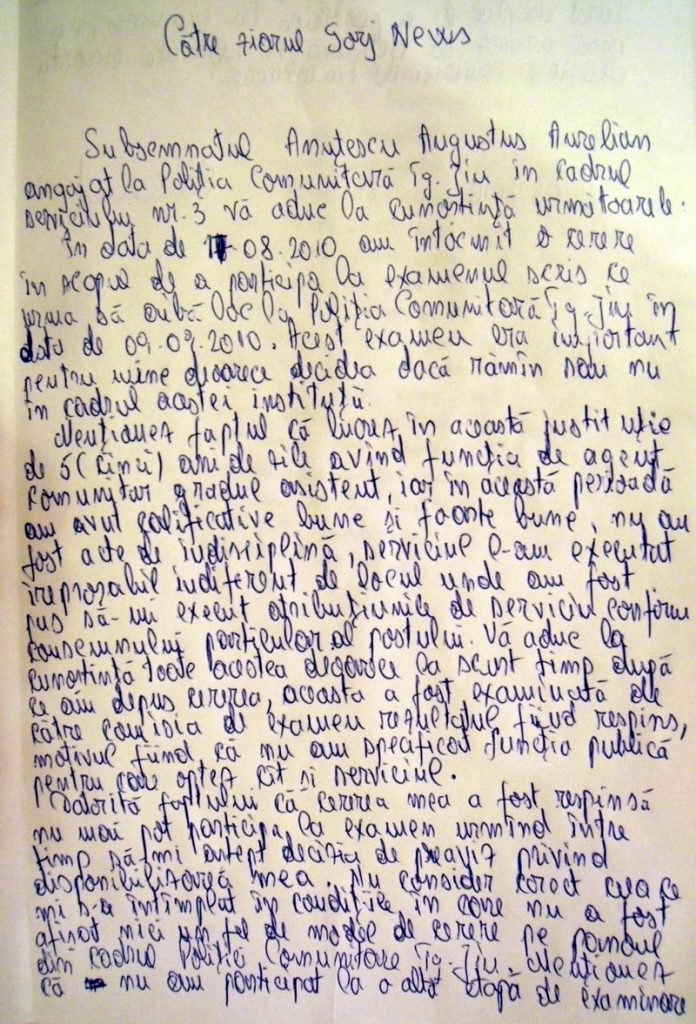 Către ziarul Gorj News
Subsemnatul Anuțescu Augustus Aurelian
angajat la Poliția Comunitară Tg. Jiu în cadrul
serviciului nr. 3 vă aduc la cunostință urmatoarele.
În data de 17-08.2010 am întocmit o cerere
în scopul de a participa la examenul scris ce
urma să aibă loc la Poliția Comunitară Tg. Jiu în
data de 09.09.2010. Acest examen era important
pentru mine deoarece decidea dacă rămîn sau nu
în cadrul acestei instituții.
Menționez faptul că lucrez în această instituție
de 5 (cinci) ani de zile avînd funcția de agent
comunitar gradul asistent, iar în această perioadă
am avut calificative bune si foarte bune, nu au
fost acte de indisciplină, serviciul l-am executat
ireprosabil indiferent de locul unde am fost
pus să-mi execut atribuțiunile de serviciu conform
consemnului particular al postului. Vă aduc la
cunostință toate acestea deoarece la scurt timp după
ce am depus cererea, aceasta a fost examinată de
către comisia de examen rezultatul fiind respins,
motivul fiind că nu am specificat funcția publică
pentru care optez cît si serviciul.
Datorită faptului că cererea mea a fost respinsă
nu mai pot participa la examen urmînd între
timp să-mi astept decizia de preaviz privind
disponibilizarea mea. Nu consider corect ceea ce
mi s-a întîmplat în condițiile în care nu a fost
afisat nici un fel de model de cerere pe panoul
din cadrul Poliției Comunitare Tg. Jiu. Menționez
că nu am participat la o altă etapă de examinare